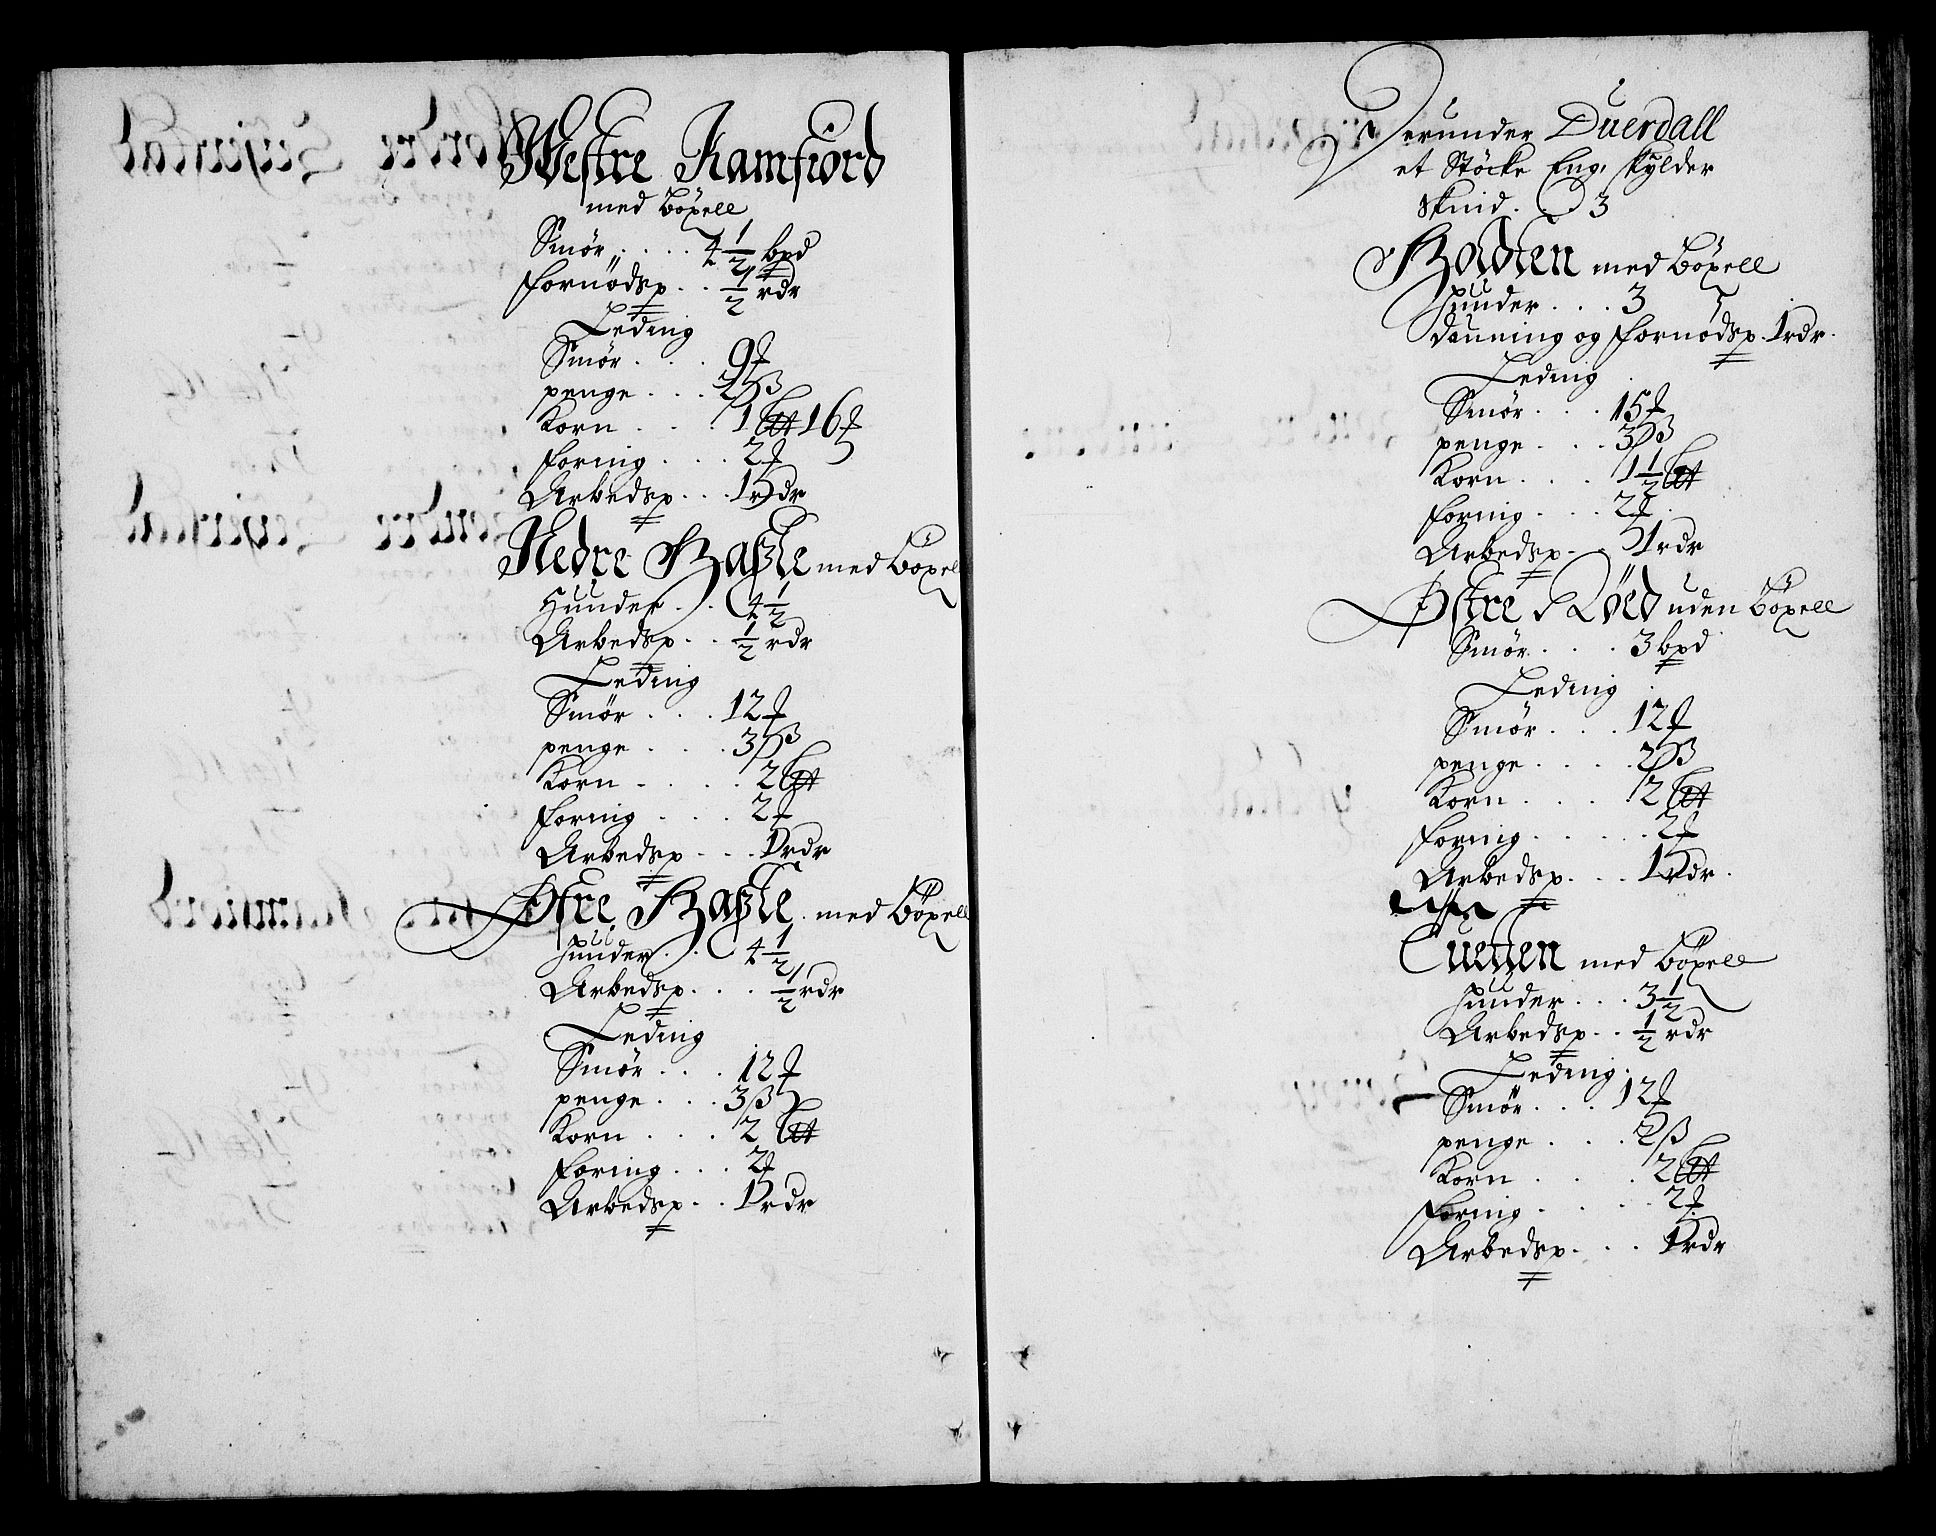 Westre Ramfiord
med Böxell
Smör . . . . 4 1/2 bpd
fornødsp . . 1/2 rdr
Leding
Smör . . . 9 ℔
penge . . . 2 ß
Korn . . . . 1 16 ℔
foring . . . . 2 ℔
Arbedsp . . . 1 rdr
Nedre Baßle med Böxel
Hunder . . 4 1/2
Arbedsp . . 1/2 rdr
Leding
Smör . . . . 12 ℔
penge . . . . 3 ß
Korn . . . . . 2
foring . . . . 2 ℔
Arbedsp . . . 1 rdr
Øfre Baßle med Böxell
Hunder . . 4 1/2
Arbedsp . . . 1/2 rdr
Leding
Smör . . . 12 ℔
penge . . . 3 ß
Korn . . . . 2
foring . . . . 2 ℔
Arbedsp . . 1 rdr
Herunder Duerdall
et Støcke Eng, skylder
Skind . . . 3
med Böxell
Hunder . . . 3
og fornødsp . 1 rdr .
Leding
Smör . . . 15 ℔
penge . . . . 3 ß
Korn . . . . 1 1/2
foring . . . . 2 ℔
Arbedsp . . 1 rdr
Østre Röed uden Böxell
Smör . . . . 3 bpd
Leding
Smör . . . . 12 ℔
penge . . . . . 2 ß
Korn . . . . . 2
foring . . . . . . 2 ℔
Arbedsp . . . 1 rdr .
med Böxell
Hunder . . . 3 1/2
Arbedsp . . 1/2 rdr
Leding .
Smör . . . . 12 ℔
penge . . . . 2 ß
Korn . . . . . 2
foring . . . . . 2 ℔
Arbedsp . . . 1 rdr